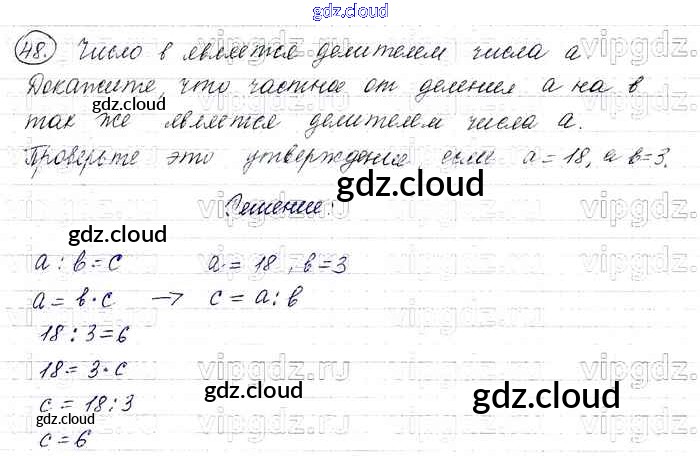 gdz.cloud
48. Число в является делителем числа а.
Докажите, что частное от деления а на в
gdz.cloud
так же является делителем числа а.
Проверьте это утверждение если а = 18, а в=3.
gdz.cloud
Решение:
gdz.cloud
а : в = с а = 18, в = 3
а = в · с → с = а : в
18 : 3 = 6
18 = 3 · с
gdz.cloud gdz.cloud
с = 18 : 3
gdz.cloud
с = 6